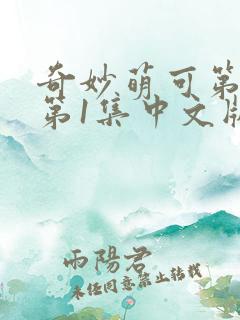 奇妙萌可第
第1集中文版
雨陽君
未經同意禁止轉載